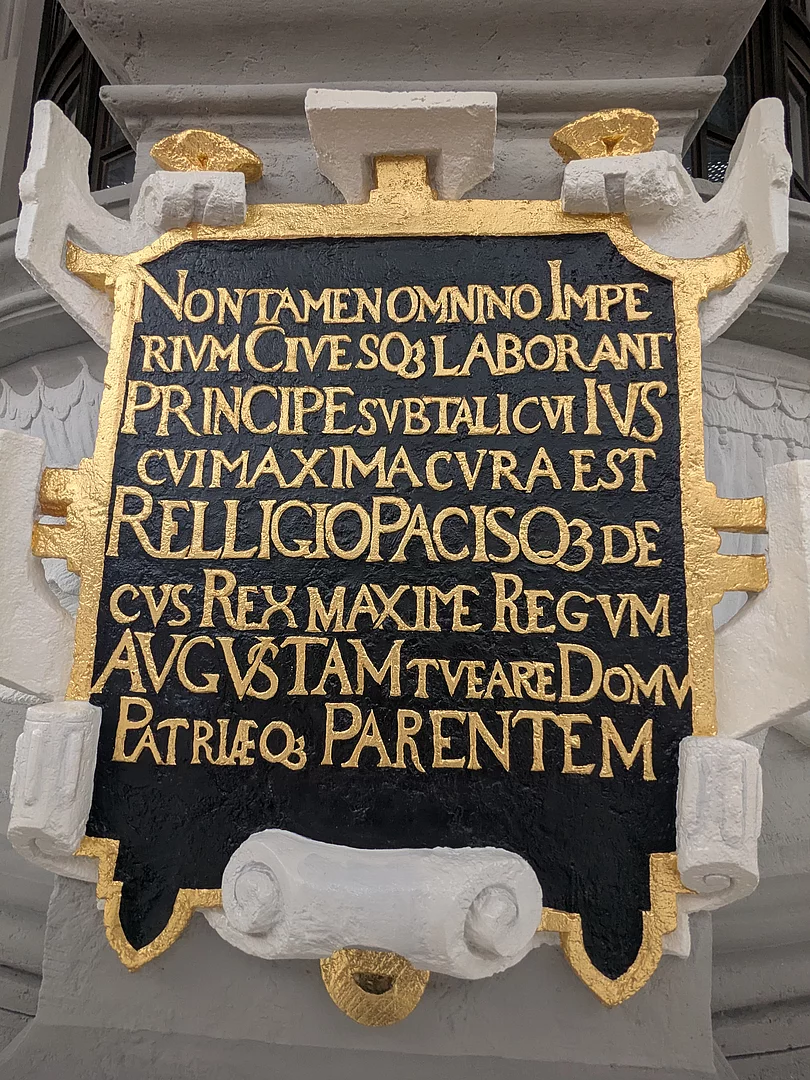 NON TAMEN OMNINO IMPE
RIVM CIVESQ3 LABORANT
PRINCIPE SVB TALI CVI IVS
CVI MAXIMA CVRA EST
RELLIGIO PACISQ3 DE
CVS REX MAXIME REGVM
AVGVSTAM TVEARE DOMV
PATRIÆQ3 PARENTEM